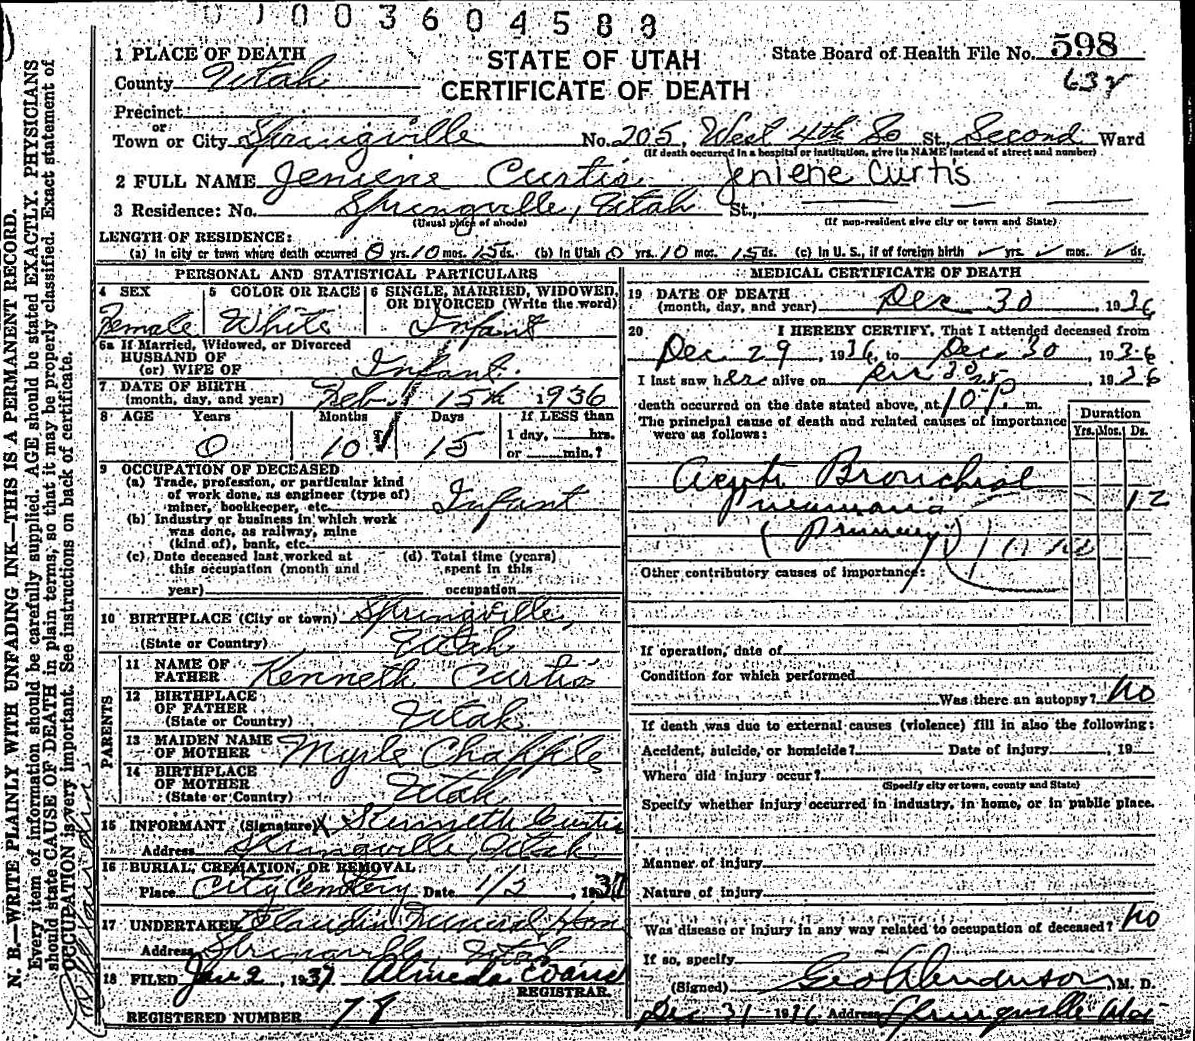 0 0 3 6 0 4 5 8 8
1 PLACE OF DEATH
County Utah
Precinct
or
Town or City Springville No. 205, West 4th So St., Second Ward
(If death occurred in a hospital or institution, give its NAME instead of street and number)
STATE OF UTAH
CERTIFICATE OF DEATH
State Board of Health File No. 598
632
2 FULL NAME Jeniene Curtis Jeniene Curtis
3 Residence: No. Springville, Utah St.,
(Usual place of abode) (If non-resident give city or town and State)
LENGTH OF RESIDENCE:
(a) In city or town where death occurred 0 yrs. 10 mos. 15 ds. (b) In Utah 0 yrs. 10 mos. 15 ds. (c) In U. S., if of foreign birth yrs. mos. ds.
PERSONAL AND STATISTICAL PARTICULARS
4 SEX
Female
5 COLOR OR RACE
White
6 SINGLE, MARRIED, WIDOWED,
OR DIVORCED (Write the word)
Infant
6a If Married, Widowed, or Divorced
HUSBAND OF
(or) WIFE OF Infant.
7 DATE OF BIRTH
(month, day, and year) Feb. 15th 1936
8 AGE Years Months Days If LESS than
0 10 15 1 day, hrs.
or min.?
9 OCCUPATION OF DECEASED
(a) Trade, profession, or particular kind
of work done, as engineer (type of)
miner, bookkeeper, etc. Infant
(b) Industry or business in which work
was done, as railway, mine
(kind of), bank, etc.
(c) Date deceased last worked at
this occupation (month and
year)
(d) Total time (years)
spent in this
occupation
10 BIRTHPLACE (City or town) Springville,
(State or Country) Utah
PARENTS
11 NAME OF
FATHER Kenneth Curtis
12 BIRTHPLACE
OF FATHER
(State or Country) Utah
13 MAIDEN NAME
OF MOTHER Myrle Chapple
14 BIRTHPLACE
OF MOTHER
(State or Country) Utah
15 INFORMANT (Signature) X Kenneth Curtis
Address Springville, Utah
16 BURIAL, CREMATION, OR REMOVAL
Place City Cemetery Date 1/2, 1937
17 UNDERTAKER Claudin Funeral Home
Address Springville, Utah
18 FILED Jan 2, 1937 Almeda Evans
REGISTRAR.
REGISTERED NUMBER 78
MEDICAL CERTIFICATE OF DEATH
19 DATE OF DEATH
(month, day, and year) Dec 30 1936
20 I HEREBY CERTIFY, That I attended deceased from
Dec 29, 1936, to Dec. 30, 1936
I last saw her alive on Dec 30 1936
death occurred on the date stated above, at 10 P. m.
The principal cause of death and related causes of importance
were as follows:
Duration
Yrs. Mos. Ds.
Acute Bronchial
Pneumonia 12
(Primary)
Other contributory causes of importance:
If operation, date of
Condition for which performed
Was there an autopsy? no
If death was due to external causes (violence) fill in also the following:
Accident, suicide, or homicide? Date of injury, 19
Where did injury occur?
(Specify city or town, county and State)
Specify whether injury occurred in industry, in home, or in public place.
Manner of injury
Nature of injury
Was disease or injury in any way related to occupation of deceased? no
If so, specify
(Signed) Geo Anderson, M. D.
Dec 31 1936 Address Springville Utah
N. B.—WRITE PLAINLY WITH UNFADING INK—THIS IS A PERMANENT RECORD.
Every item of information should be carefully supplied. AGE should be stated EXACTLY. PHYSICIANS
should state CAUSE OF DEATH in plain terms, so that it may be properly classified. Exact statement of
OCCUPATION is very important. See instructions on back of certificate.